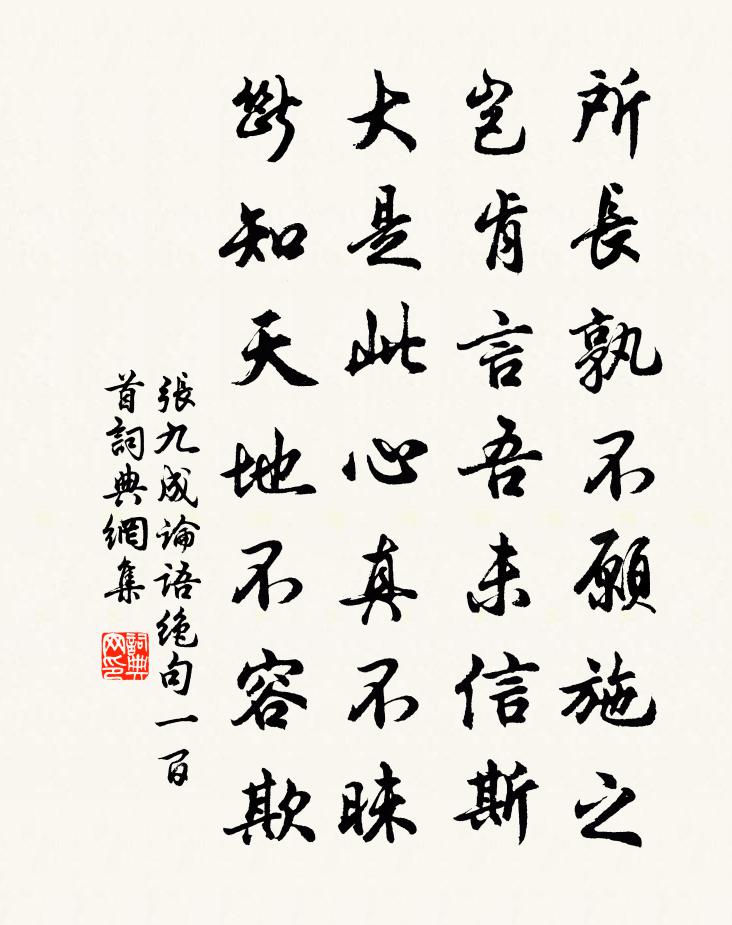 所長孰不願施之
豈肯言吾未信斯
大是此心真不昧
斷知天地不容欺
張九成論語絶句一百
首詞典網集
詞典
网印